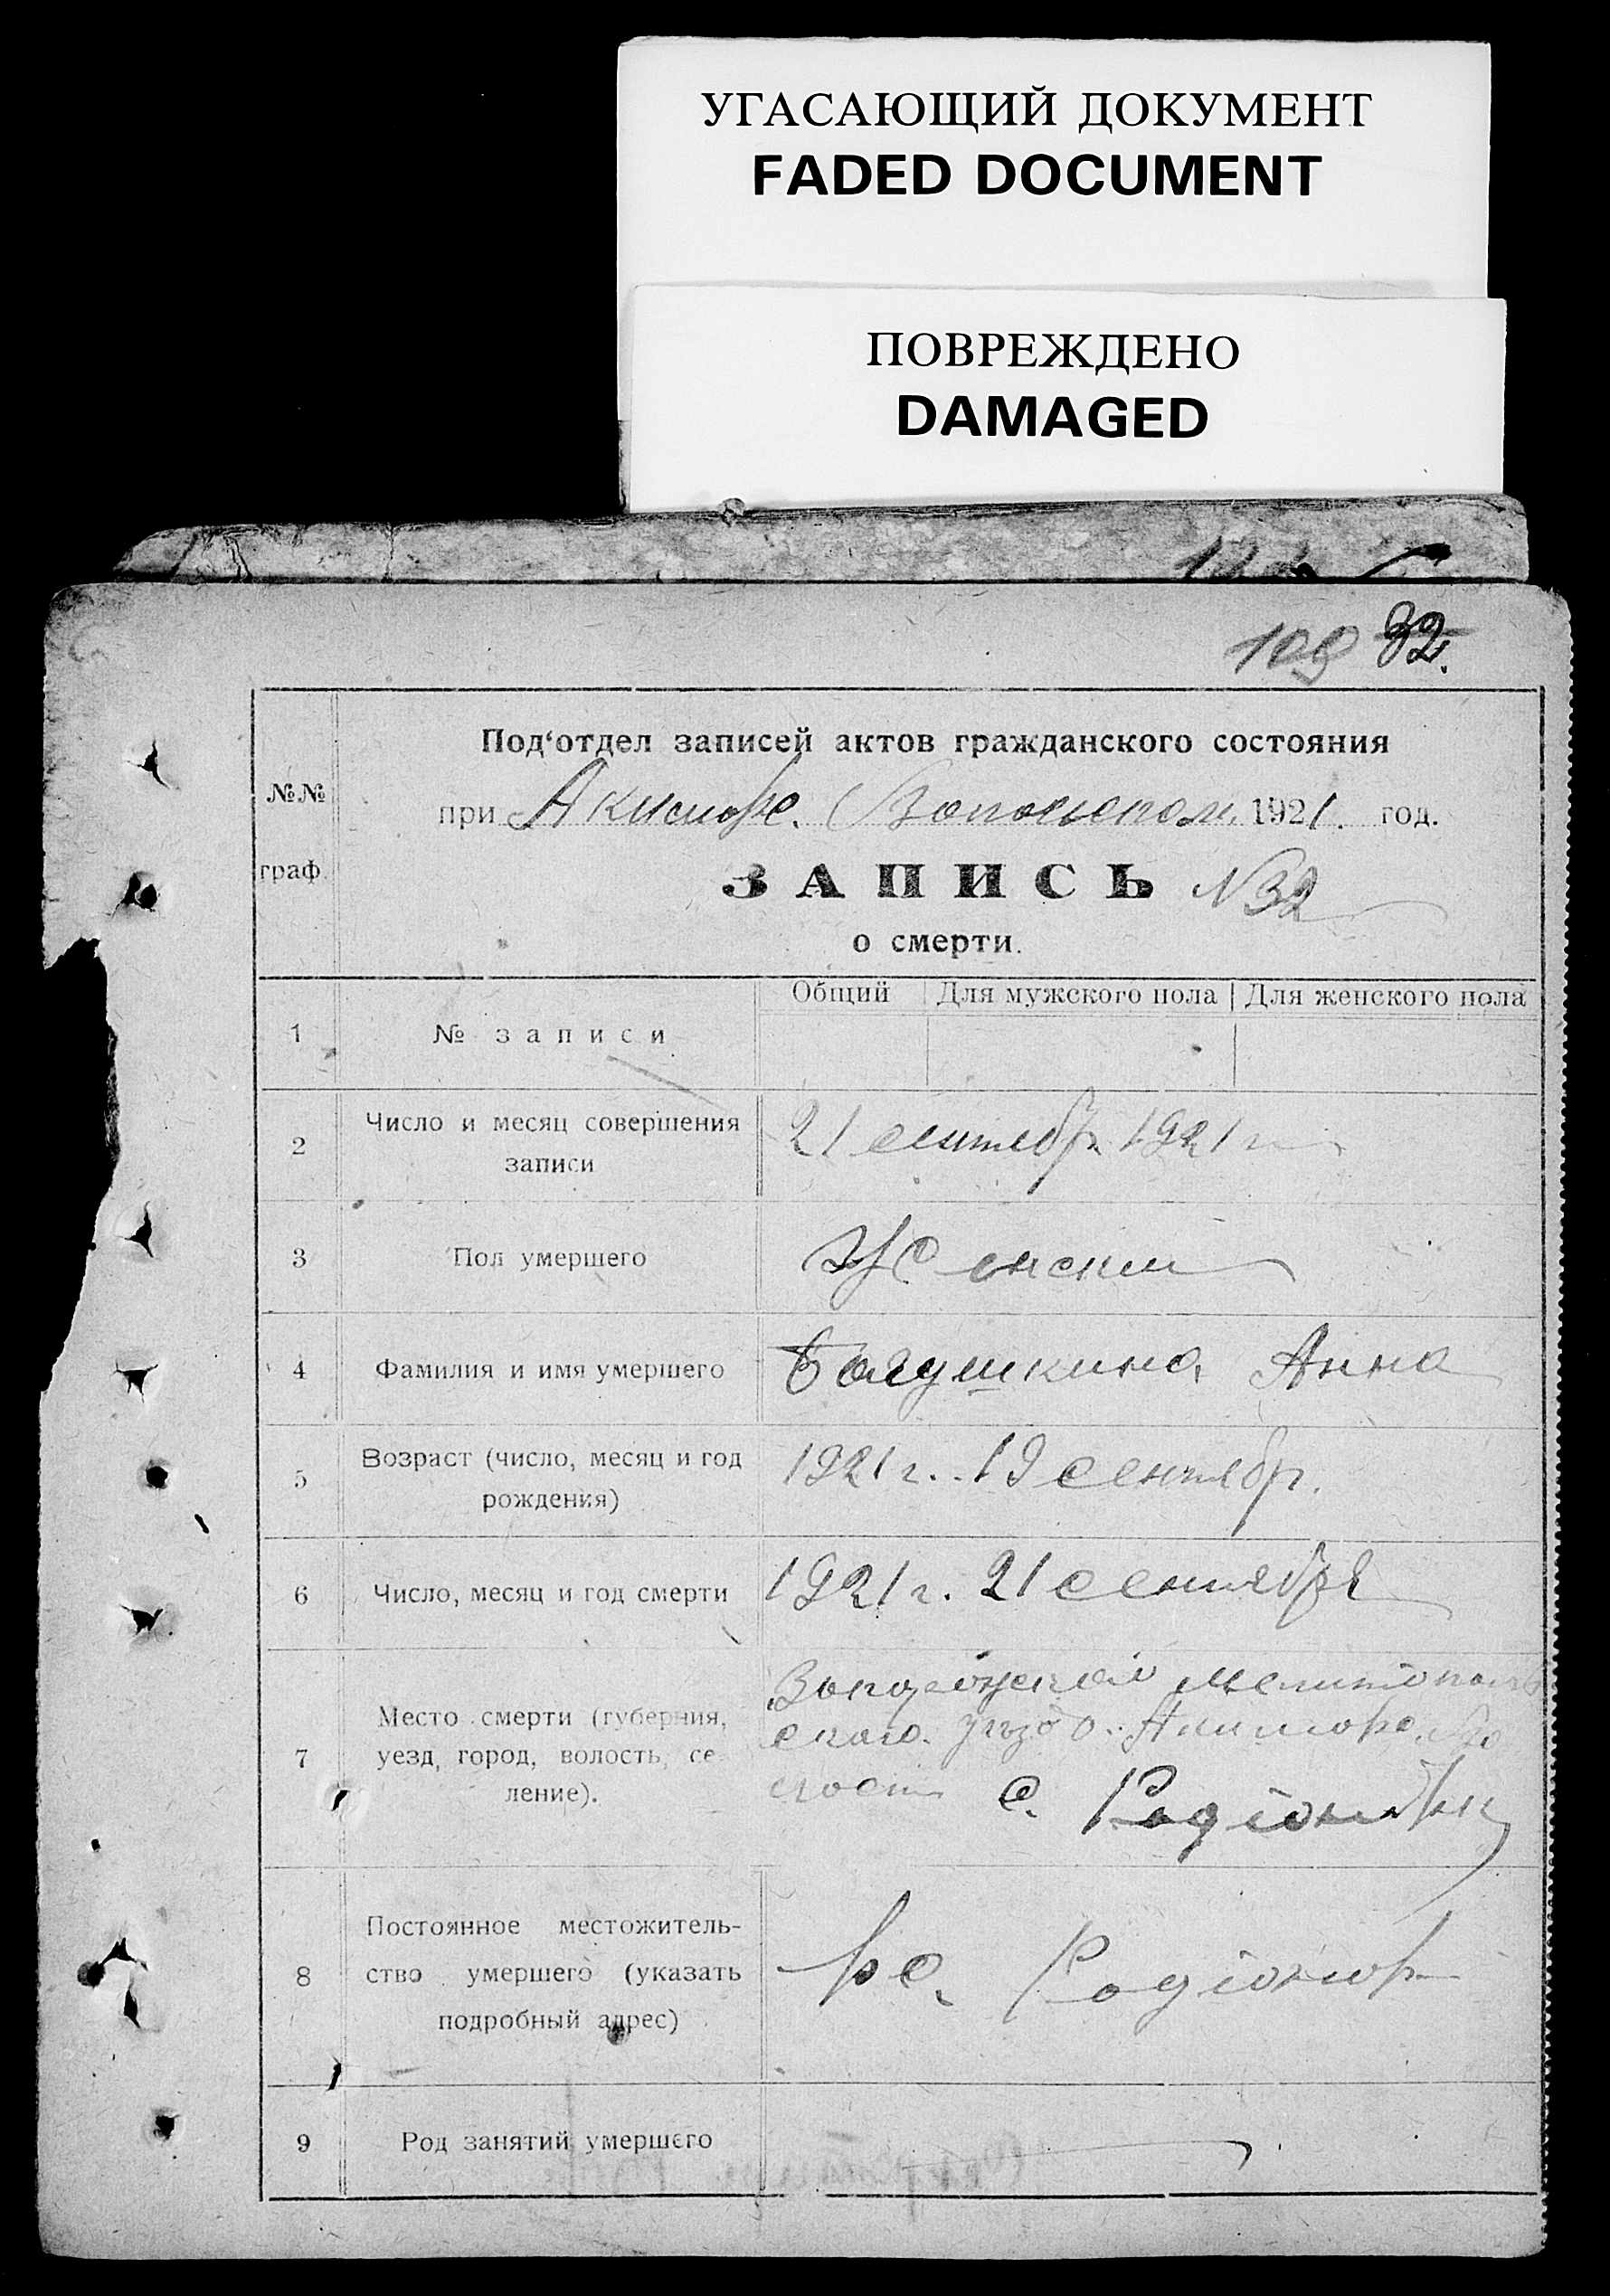 УГАСАЮЩИЙ ДОКУМЕНТ
FADED DOCUMENT
ПОВРЕЖДЕНО
DAMAGED
109 32.
Под‘отдел записей актов гражданского состояния
№№
при Акимовс. 1921. год.
граф.
ЗАПИСЬ N32
о смерти.
Общий Для мужского пола Для женского пола
1 № записи
2 Число и месяц совершения
записи
21 сентябр. 1921 г
3 Пол умершего Женский
4 Фамилия и имя умершего Бабушкина Анна
5 Возраст (число, месяц и год
рождения)
1921 г. 19 сентябр.
6 Число, месяц и год смерти 1921 г. 21 сентября
7 Место смерти (губерния,
уезд, город, волость, се-
ление).
Запорожской Мелитополь
ского уезда
с. Родионовки
8 Постоянное местожитель-
ство умершего (указать
подробный адрес)
с. Родионов
9 Род занятий умершего